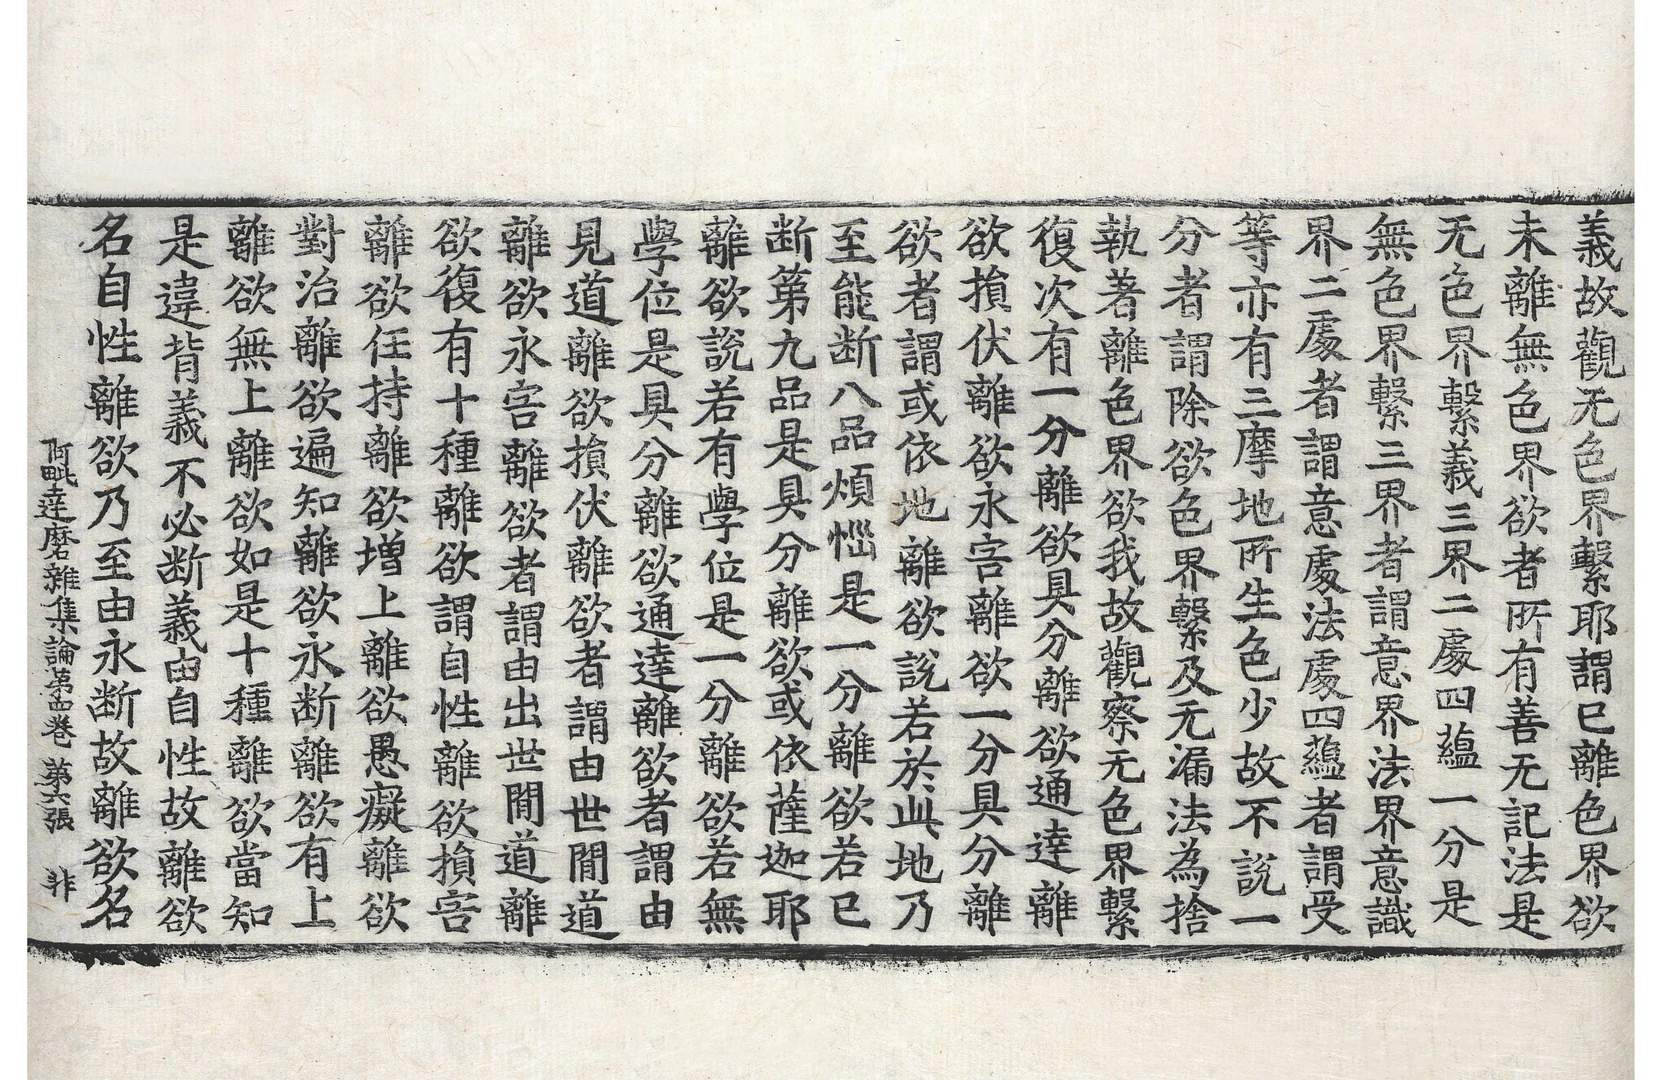 義故觀无色界繫耶謂已離色界欲
未離無色界欲者所有善无記法是
无色界繫義三界二處四蘊一分是
無色界繫三界者謂意界法界意識
界二處者謂意處法處四蘊者謂受
等亦有三摩地所生色少故不說一
分者謂除欲色界繫及无漏法為捨
執著離色界欲我故觀察无色界繫
復次有一分離欲具分離欲通達離
欲損伏離欲永害離欲一分具分離
欲者謂或依地離欲說若於此地乃
至能断八品煩惱是一分離欲若已
断第九品是具分離欲或依薩迦耶
離欲說若有學位是一分離欲若無
學位是具分離欲通達離欲者謂由
見道離欲損伏離欲者謂由世間道
離欲永害離欲者謂由出世間道離
欲復有十種離欲謂自性離欲損害
離欲任持離欲增上離欲愚癡離欲
對治離欲遍知離欲永断離欲有上
離欲無上離欲如是十種離欲當知
是違背義不必断義由自性故離欲
名自性離欲乃至由永断故離欲名
阿毗達磨雜集論第四卷 第六張 非